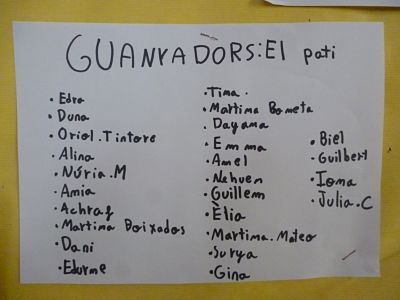 GUANYADORS:El pati
• Edra
• Duna
• Oriol.Tintore
• Alina
• Núria.M
• Amia
• Achraf
• Martina Boixados
• Dani
• Edurme
• Tima.
• Martina Bometa
• Dayama
• Emma
• Amel
• Nehuen
• Guillem
• Èlia
• Martima.Mateo
• Surya
• Gina
• Biel
• Guilbert
• Ioma
• Julia.C